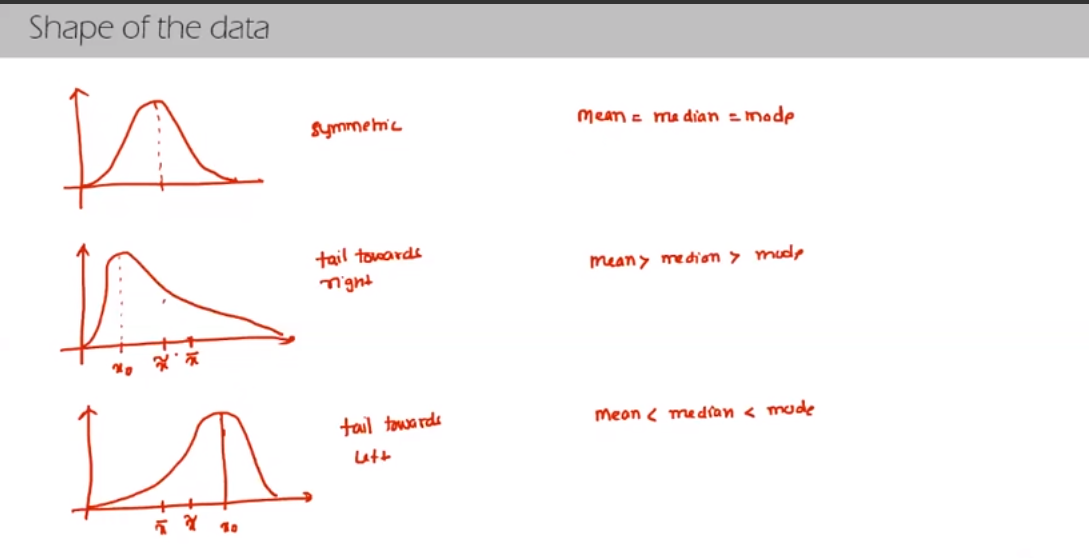 Shape of the data
symmetric
mean = median = mode
tail towards
right
mean > median > mode
x₀ x̃ x̄
tail towards
Left
mean < median < mode
x̄ x̃ x₀